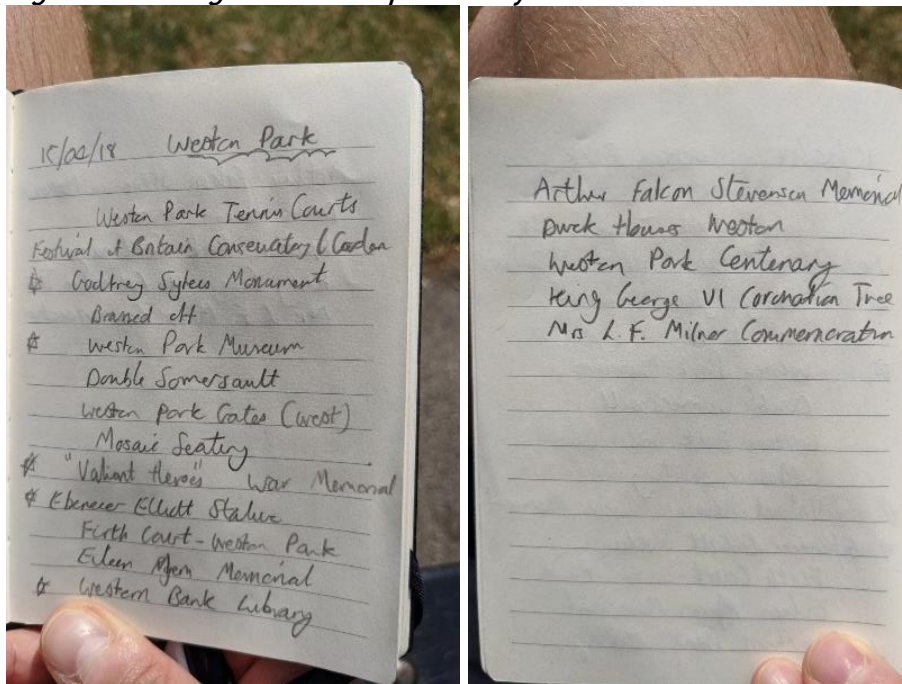 15/04/18 Weston Park
Weston Park Tennis Courts
Festival of Britain Conservatory & Garden
☆ Godfrey Sykes Monument
Branced off
☆ Weston Park Museum
Double Somersault
Weston Park Gates (West)
Mosaic Seating
☆ "Valiant Heroes" War Memorial
☆ Ebenezer Elliott Statue
Firth Court - Weston Park
Eileen Memorial
☆ Western Bank Library
Arthur Falcon Stevenson Memorial
Duck Houses Weston
Weston Park Centenary
King George VI Coronation Tree
Mrs L.F. Milner Commemoration